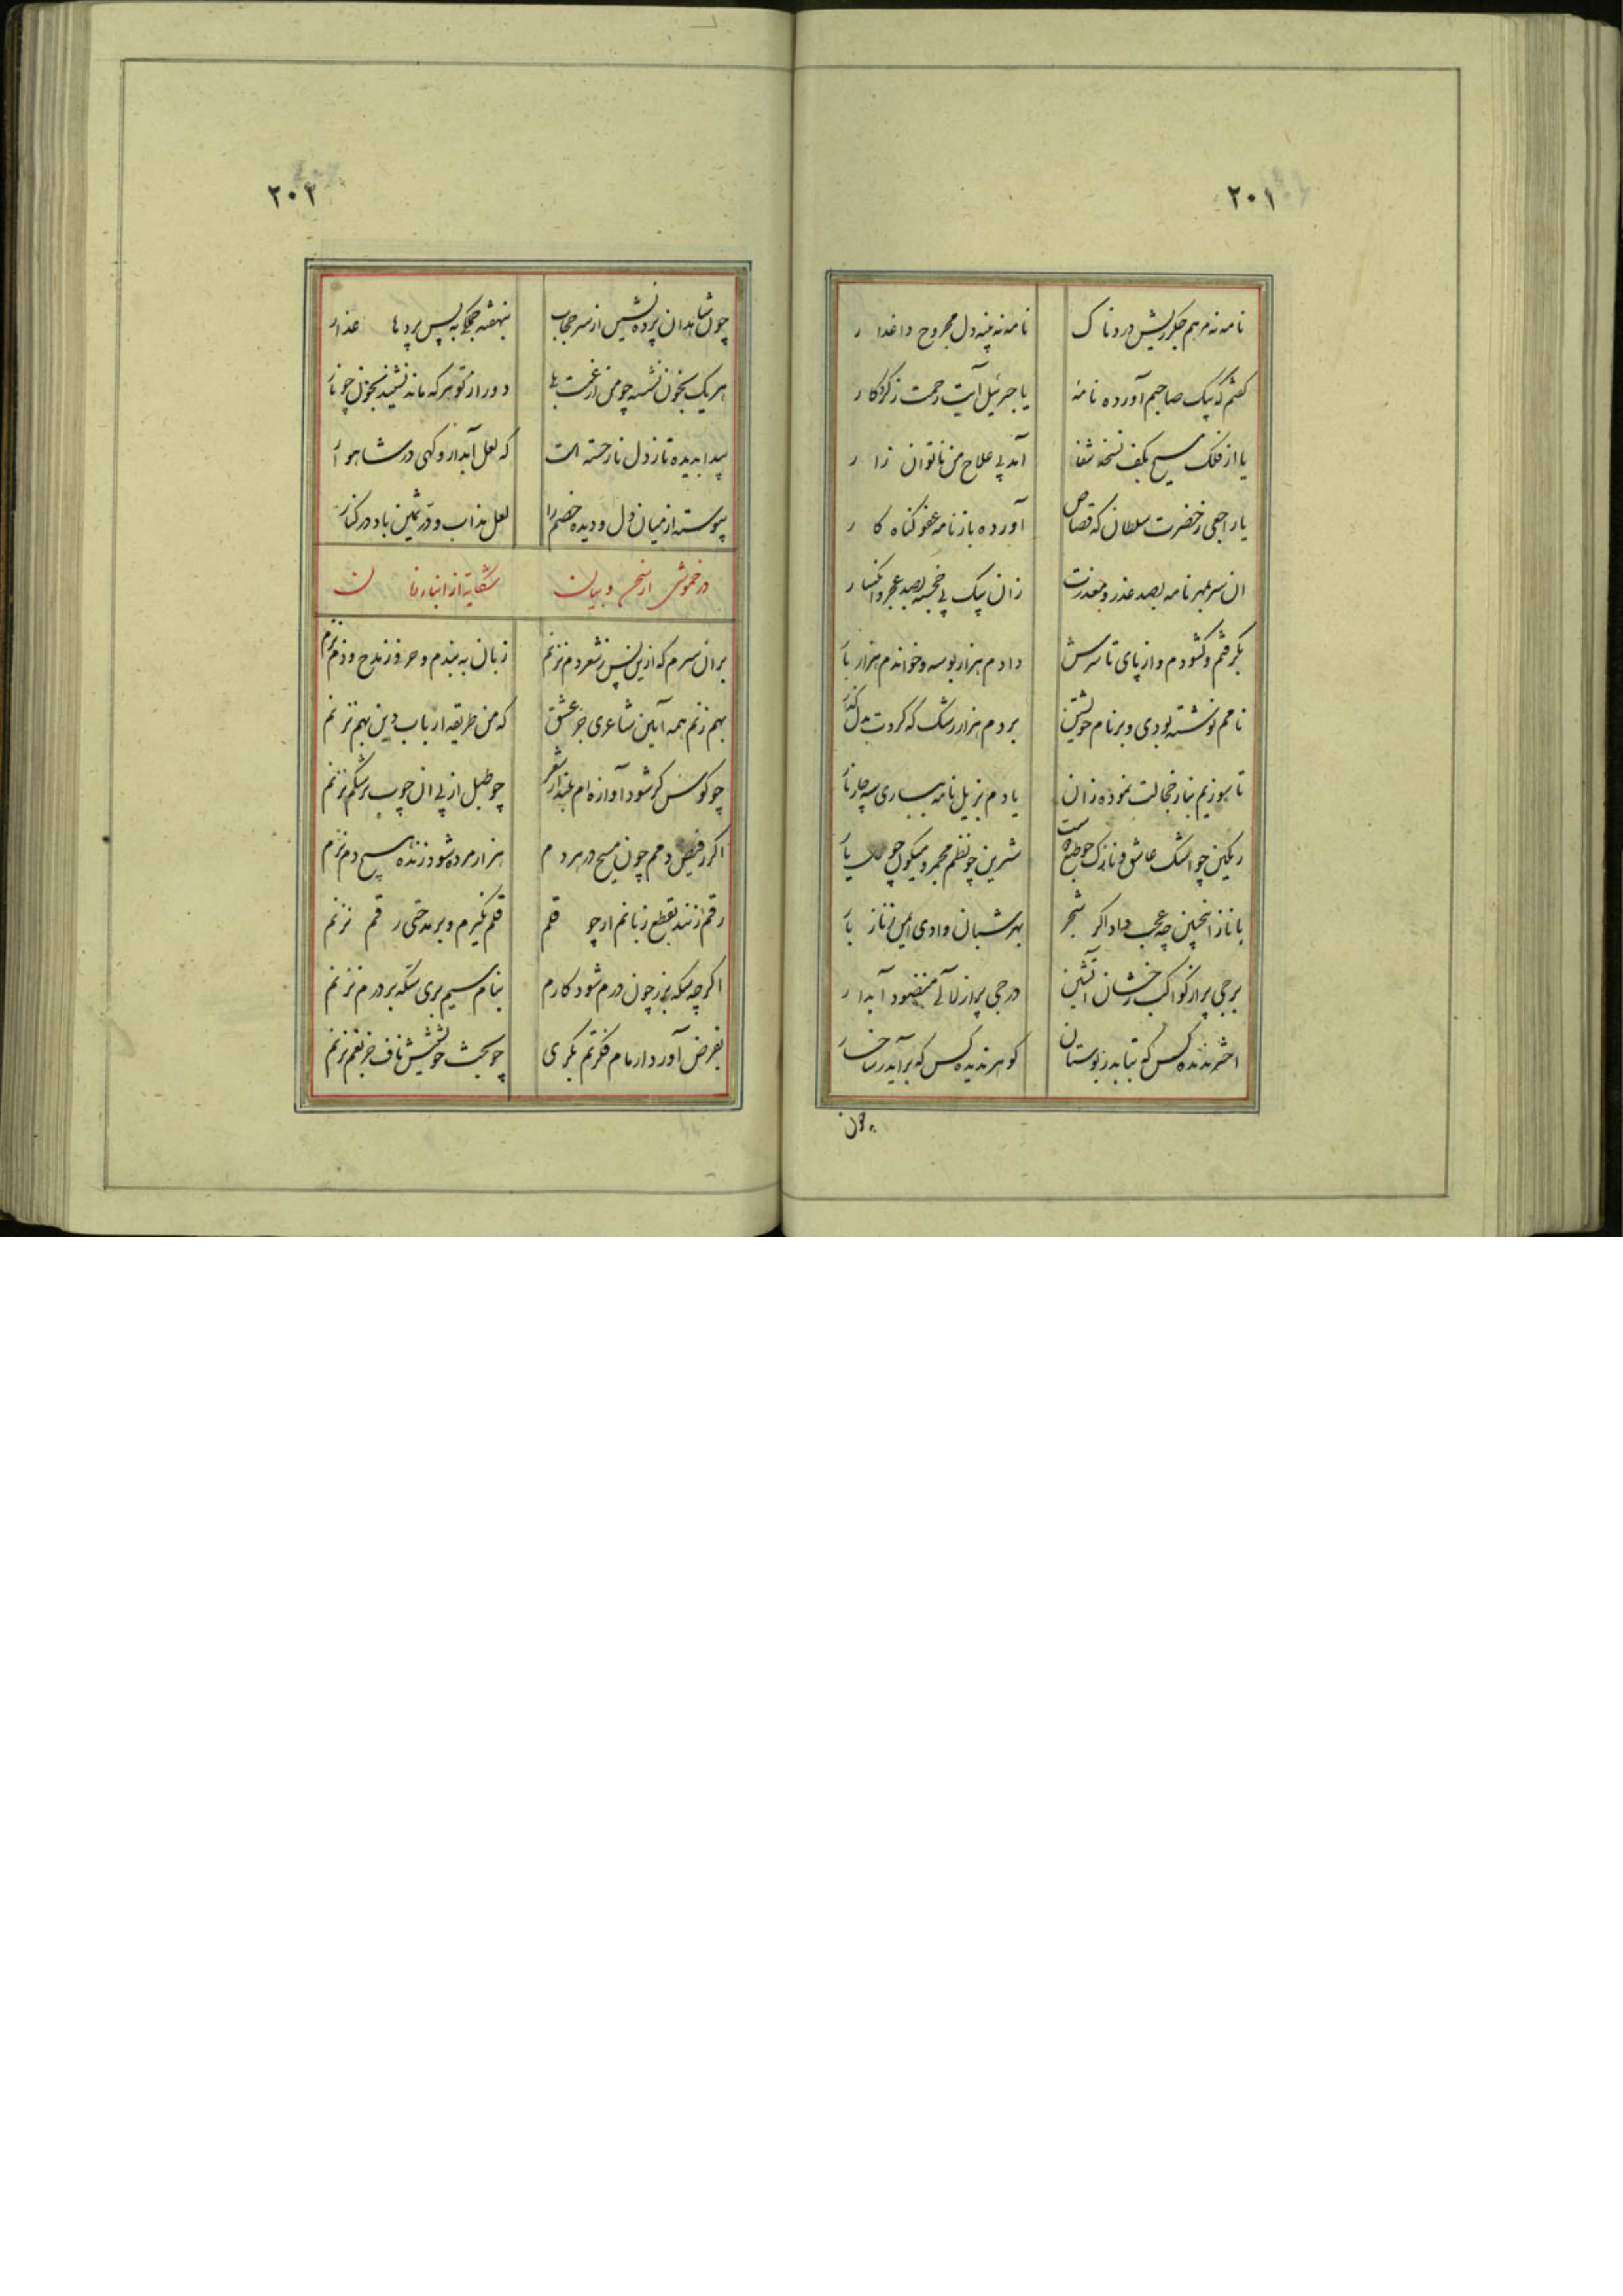 ۲۰۱
نامه نه مرهم جگر ریش دردناک نامه نه پنبه دل مجروح داغدار
گفتم که پیک صاحبم آورده نامهٔ یا جبرئیل آیت رحمت ز کردگار
یا از فلک مسیح بکف نسخه شفا آمد پی علاج من ناتوان زار
یا راجی ز حضرت سلطان که قصاص آورده باز نامه عفو گناه کار
ان سر بمهر نامه بصد عذر و معذرت زان پیک پی خجسته بصد عجز و انکسار
بگرفتم و گشودم و از پای تا سرش دادم هزار بوسه و خواندم هزار بار
نامم نوشته بودی و بر نام خویشتن بردم هزار رشک که کردت بدل گذار
تا سوزیم بنار خجالت نموده زان یادم بزیل نامه بساری سه چار بار
رنگین چو اشک عاشق و نازک چو طبع شیرین چو نظم مجمر و میگون چو یار
با ناز اینچنین چه عجب داد اگر شجر بهر شبان وادی ایمن ز ناز بار
برجی پر از کواکب رخشان آتشین درجی پر از لآلی منضود آبدار
اختر ندیده کس که بتابد ز بوستان گوهر ندیده کس که برآید ز شاخسار
چون
۲۰۲
چون شاهدان پرده نشین از سر حجاب بنهفته جملگی به پس پردها عذار
هر یک بخون نشسته چو من از غمت بلی دور از تو هر که ماند نشیند بخون چو نار
پیدا بدیده تا ز دل نار خسته است که لعل آبدار و گهی در شاهوار
پیوسته از میان دل و دیده خصم را لعل مذاب و در ثمین باد در کنار
در خموشی از سخن و بیان شکایة از ابناء زمان
بر ان سرم که ازین پس ز شعر دم نزنم زبان به بندم و حرف ز مدح و ذم نزنم
بهم زنم همه آیین شاعری جز عشق که من طریقه ارباب دین بهم نزنم
چو کوس گر شود آوازه ام بلند از شعر چو طبل از پی ان چوب بر شکم نزنم
اگر ز فیض دمم چون مسیح در هر دم هزار مرده شود زنده هیچ دم نزنم
رقم زنند بقطع زبانم ار چو قلم قلم نگیرم و بر مدحتی رقم نزنم
اگر چه سکه بزر چون درم شود کارم بنام سیم بری سکه بر درم نزنم
بفرض آورد ار مام فکرتم بکری چو بخت خویشش ناف جز بغم نزنم